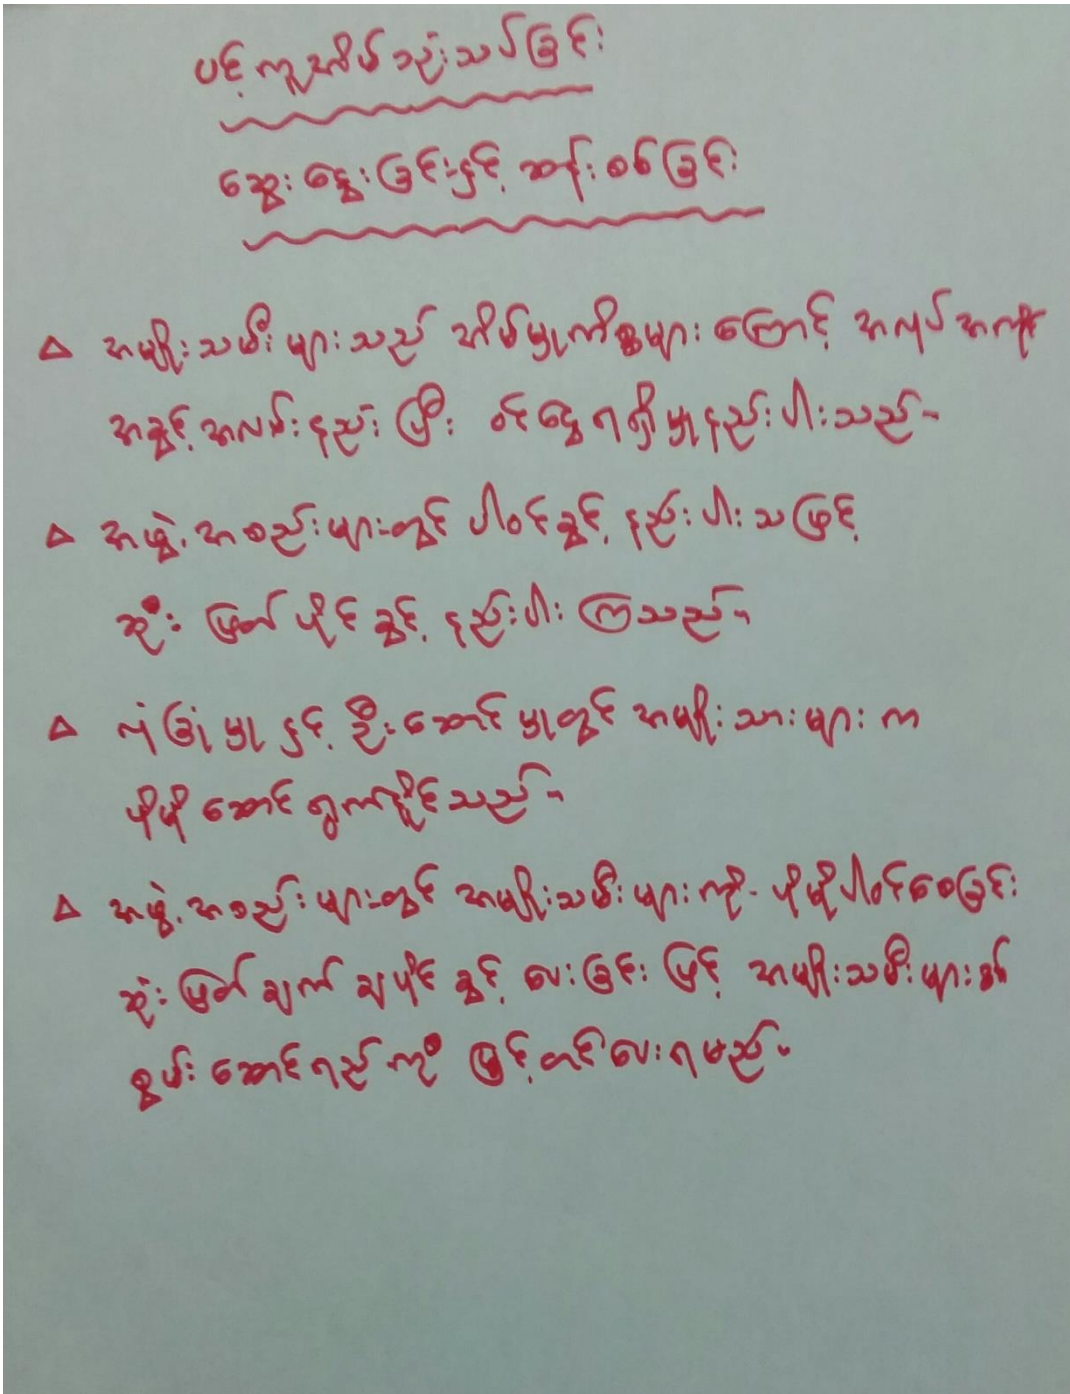 ပင့်ကူအိမ်သုံးသပ်ခြင်း
ဆွေးနွေးခြင်းနှင့် ဆန်းစစ်ခြင်း
△ အမျိုးသမီးများသည် အိမ်မှုကိစ္စများကြောင့် အလုပ်အကိုင်
အခွင့်အလမ်းနည်းပြီး ဝင်ငွေရရှိမှုနည်းပါးသည်။
△ အဖွဲ့အစည်းများတွင် ပါဝင်ခွင့် နည်းပါးသဖြင့်
ဆုံးဖြတ်ပိုင်ခွင့် နည်းပါးကြသည်။
△ လုံခြုံမှုနှင့် ဦးဆောင်မှုတွင် အမျိုးသားများက
ပိုမိုဆောင်ရွက်နိုင်သည်။
△ အဖွဲ့အစည်းများတွင် အမျိုးသမီးများကို ပိုမိုပါဝင်စေခြင်း
ဆုံးဖြတ်ချက်ချပိုင်ခွင့် ပေးခြင်းဖြင့် အမျိုးသမီးများ၏
စွမ်းဆောင်ရည်ကို မြှင့်တင်ပေးရမည်။